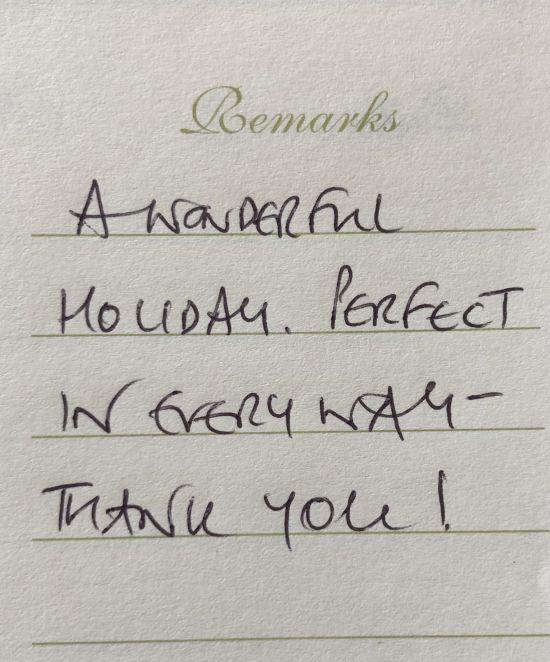 Remarks
A WONDERFUL
HOLIDAY. PERFECT
IN EVERY WAY-
THANK YOU!